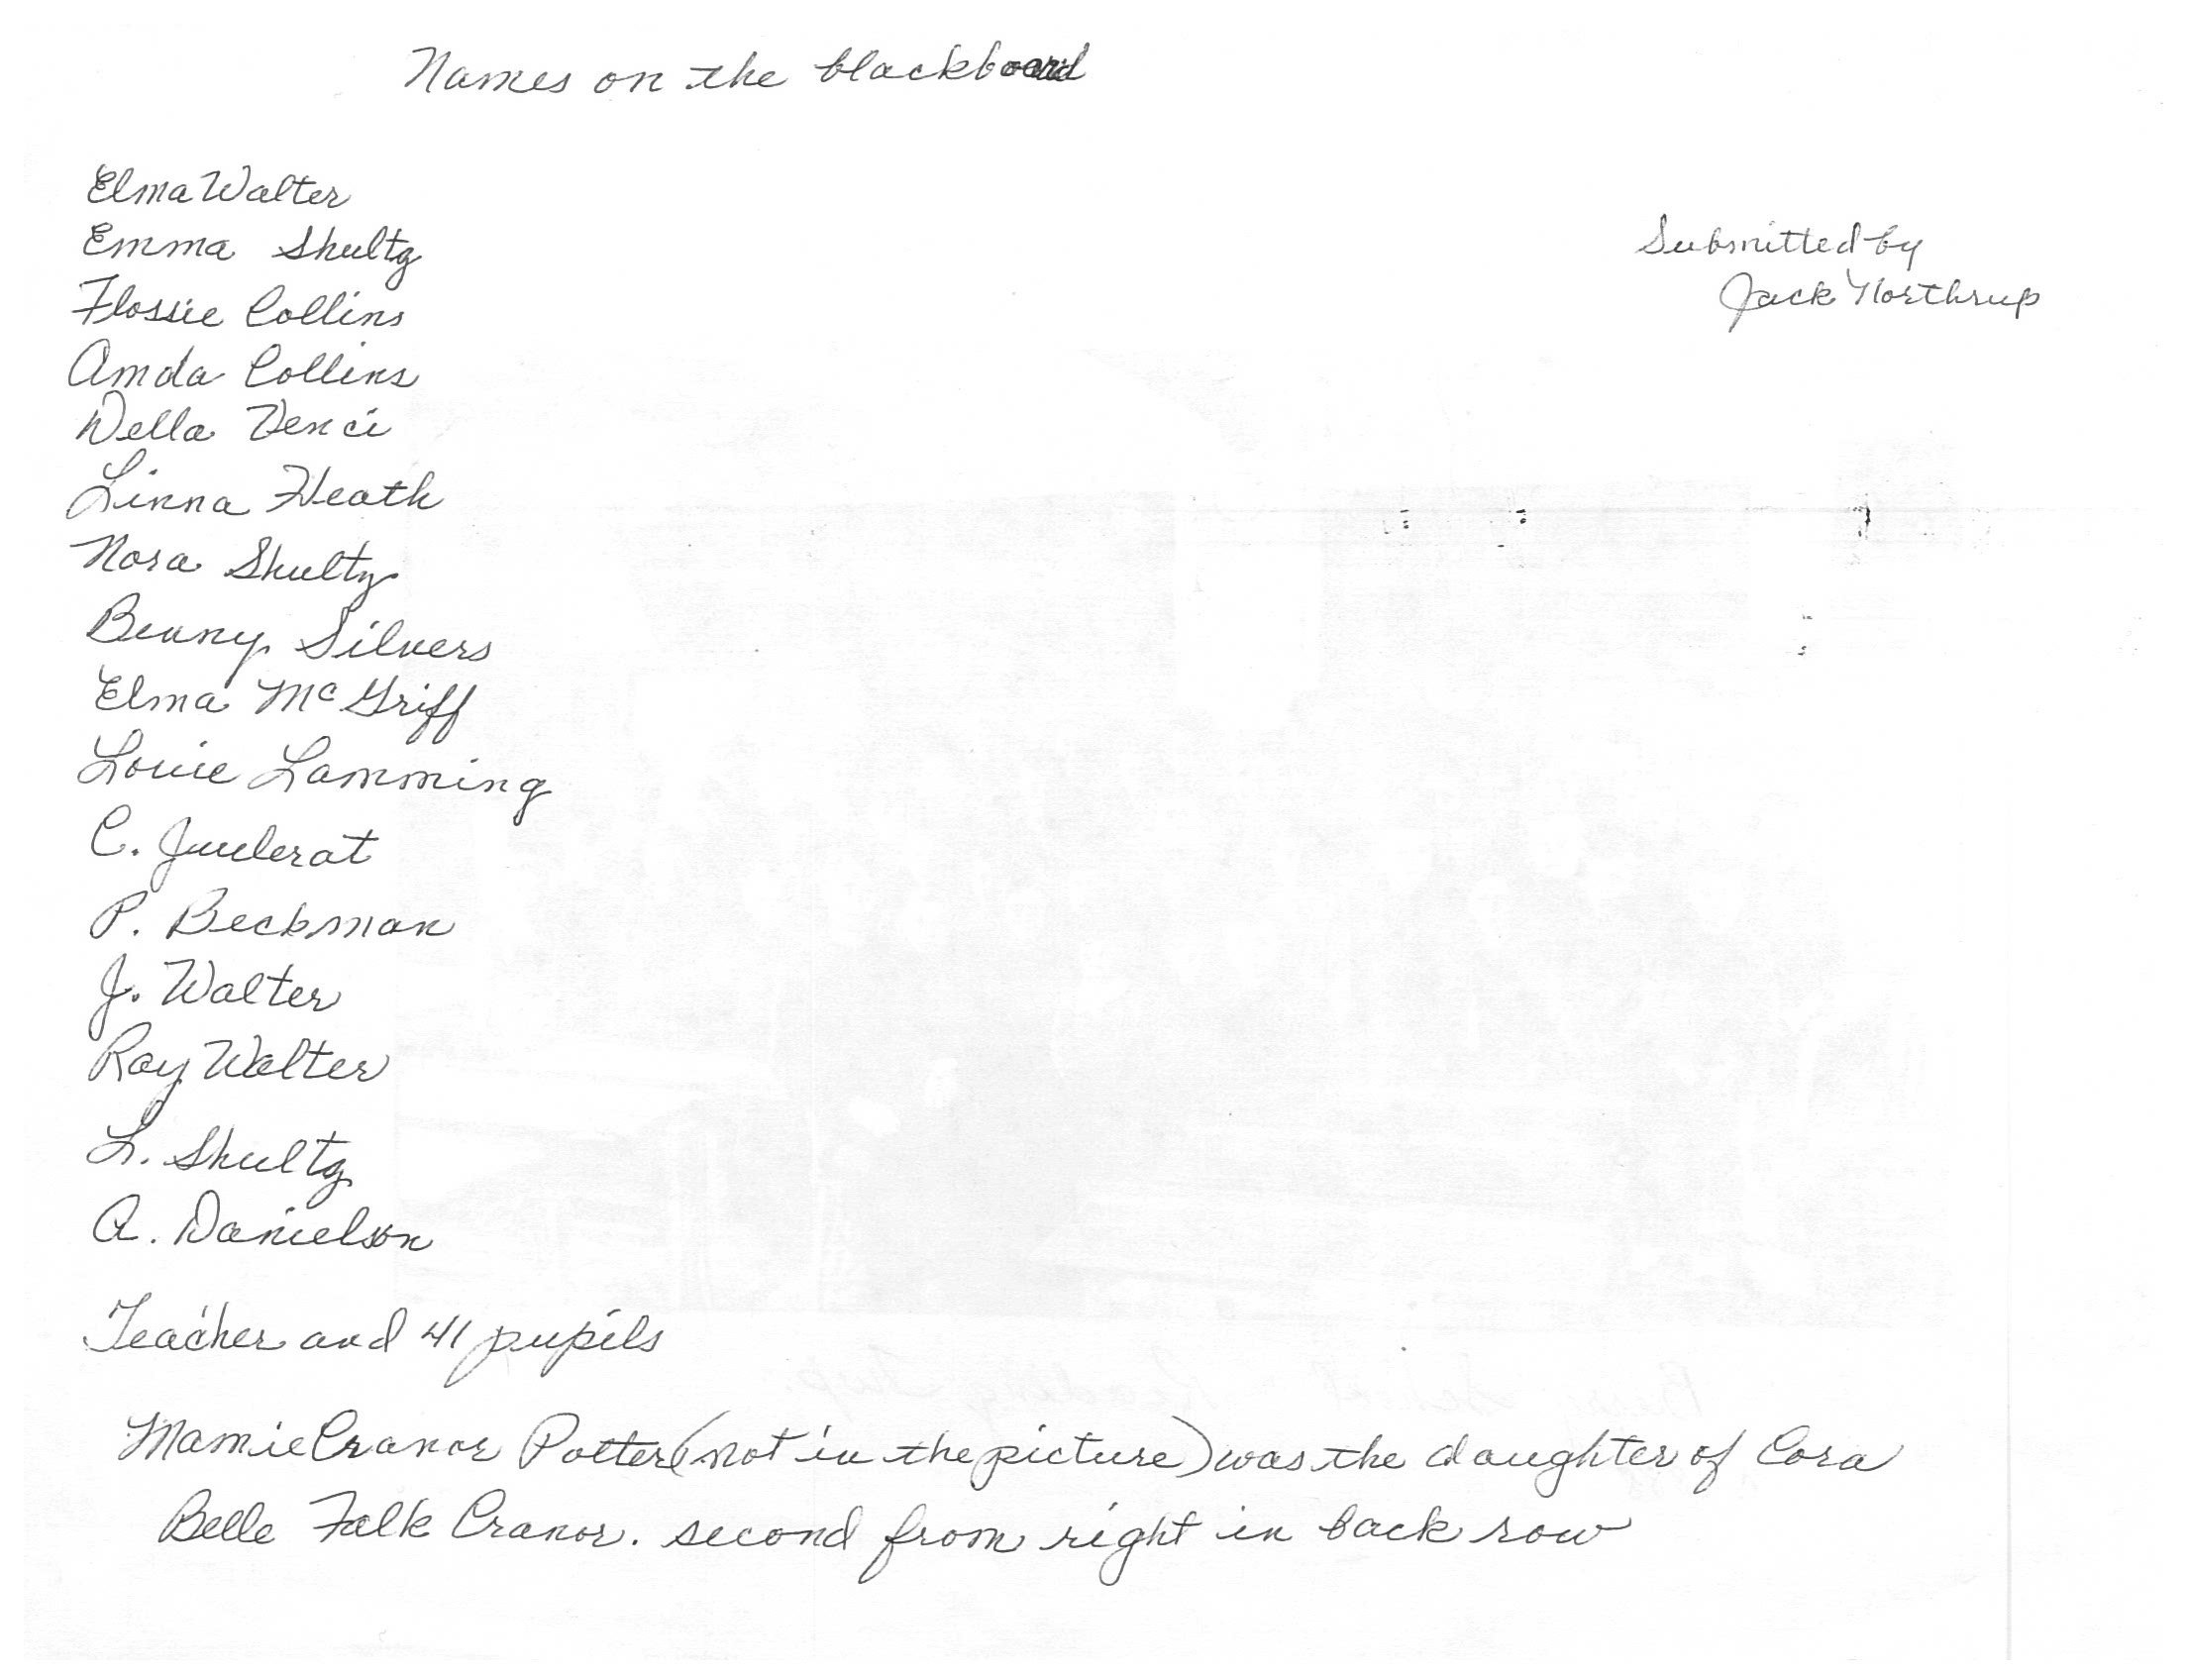 Names on the blackboard
Elma Walter
Emma Shultz
Submitted by
Jack Northrup
Flossie Collins
Amda Collins
Della Venci
Linna Heath
Nora Shultz
Benny Silvers
Elma McGriff
Louie Lamming
C. Juulerat
P. Beckman
J. Walter
Ray Walter
L. Shultz
A. Danielson
Teacher and 41 pupils
Mamie Cranor Potter (not in the picture) was the daughter of Cora
Belle Falk Cranor. second from right in back row